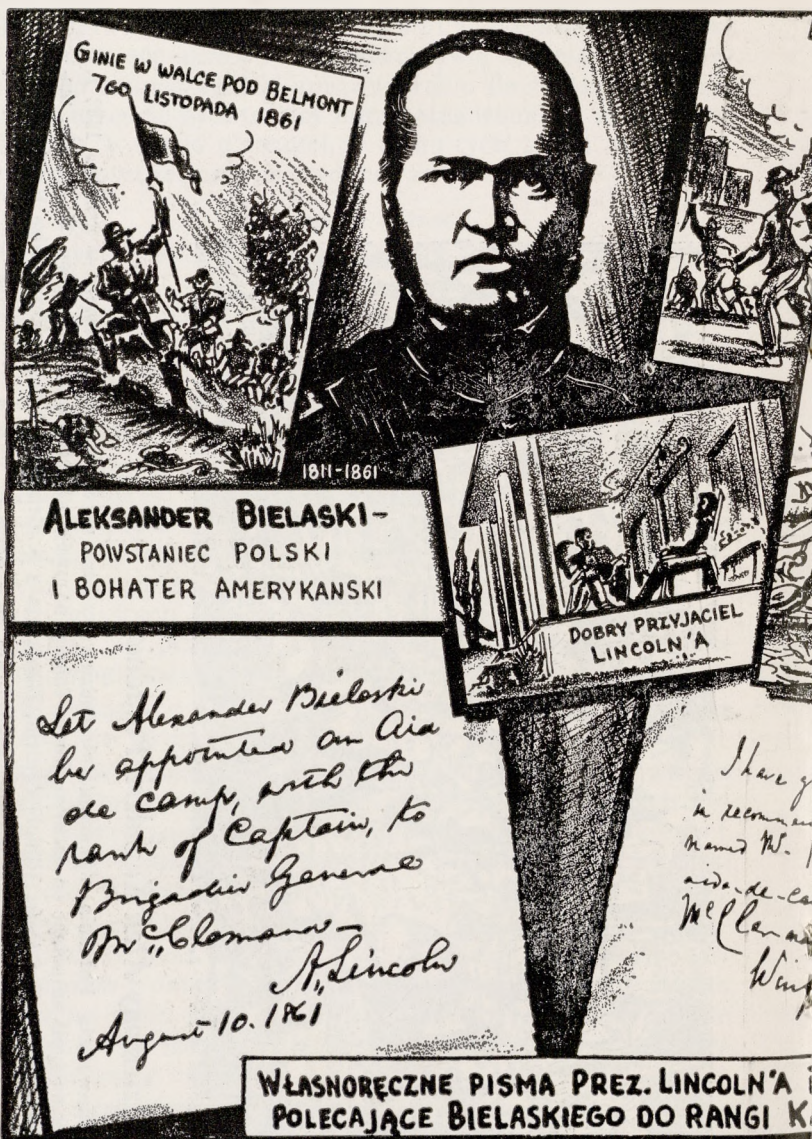 GINIE W WALCE POD BELMONT
7GO LISTOPADA 1861
1811-1861
ALEKSANDER BIELASKI-
POWSTANIEC POLSKI
I BOHATER AMERYKANSKI
DOBRY PRZYJACIEL
LINCOLN'A
Let Alexander Bielaski
be appointed an Aid
de camp, with the
rank of Captain, to
Brigadier General
McClernand—
A. Lincoln
August 10. 1861
I have
in
named Mr.
aide-de-ca
McClerna
Winf
WŁASNORĘCZNE PISMA PREZ. LINCOLN'A
POLECAJĄCE BIELASKIEGO DO RANGI K